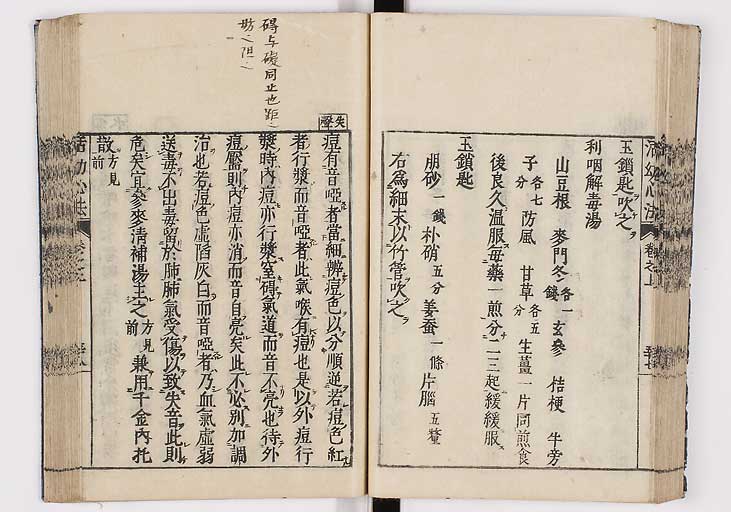 活幼心法 卷之上
玉鎖匙吹之
利咽解毒湯
山豆根 麥門冬各一錢 玄參 桔梗 牛旁
子各七分 防風 甘草各五分 生薑一片同煎食
後良久溫服每藥一煎分二三起緩緩服
玉鎖匙
朋砂一錢 朴硝五分 姜蚕一條 片腦五釐
右爲細末以竹管吹之
碍与礙同止也距之
妨之阻之
失聲
痘有音啞者當細辨痘色以分順逆若痘色紅
者行漿而音啞者此氣喉有痘也是以外痘行
漿時內痘亦行漿窒碍氣道而音不亮也待外
痘靨則內痘亦消而音自亮矣此不必別加調
治也若痘色虛陷灰白而音啞者乃血氣虛弱
送毒不出毒留於肺肺氣受傷以致失音此則
危矣宜參麥清補湯主之方見前 兼用千金內托
散方見前
活幼心法